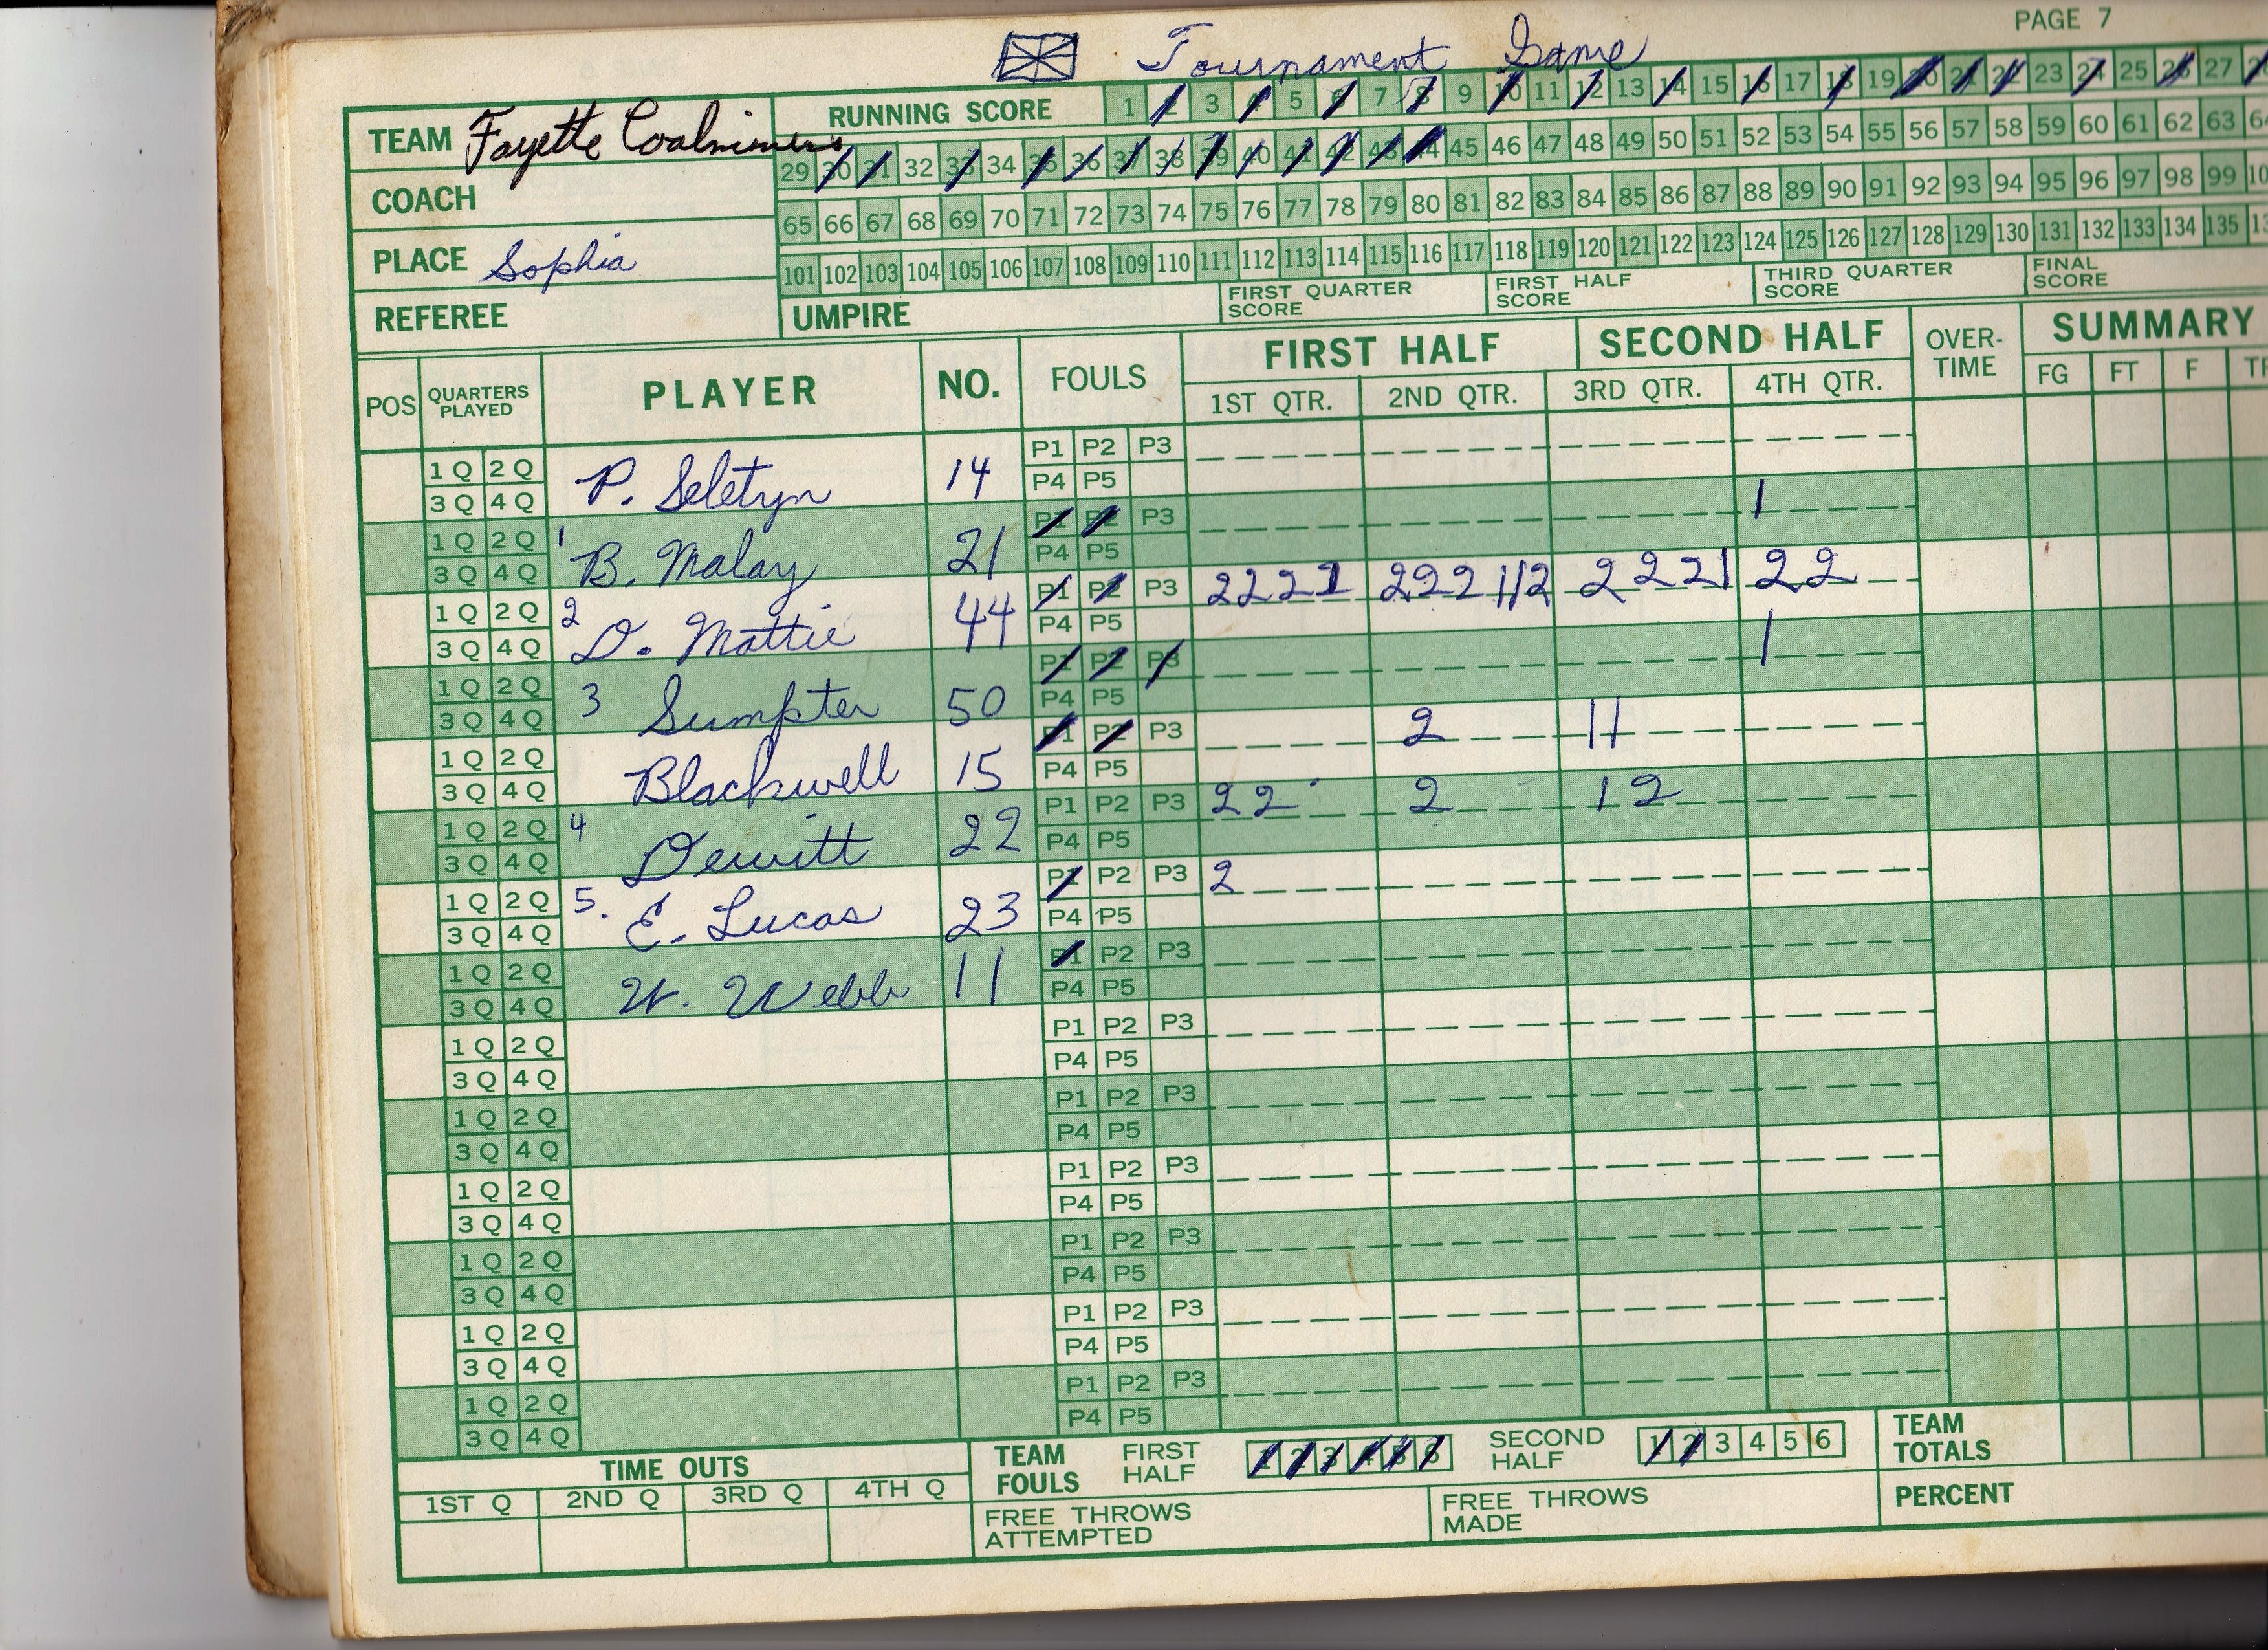 PAGE 7
Tournament Game
TEAM Fayette Coalminers
RUNNING SCORE 1 2 3 4 5 6 7 8 9 10 11 12 13 14 15 16 17 18 19 20 21 22 23 24 25 26 27
29 30 31 32 33 34 35 36 37 38 39 40 41 42 43 44 45 46 47 48 49 50 51 52 53 54 55 56 57 58 59 60 61 62 63 64
COACH
65 66 67 68 69 70 71 72 73 74 75 76 77 78 79 80 81 82 83 84 85 86 87 88 89 90 91 92 93 94 95 96 97 98 99
PLACE Sophia
101 102 103 104 105 106 107 108 109 110 111 112 113 114 115 116 117 118 119 120 121 122 123 124 125 126 127 128 129 130 131 132 133 134 135
REFEREE UMPIRE FIRST QUARTER SCORE FIRST HALF SCORE THIRD QUARTER SCORE FINAL SCORE
POS QUARTERS PLAYED PLAYER NO. FOULS FIRST HALF SECOND HALF OVER-TIME SUMMARY
1ST QTR. 2ND QTR. 3RD QTR. 4TH QTR. FG FT F
1 Q 2 Q P. Seletyn 14 P1 P2 P3
3 Q 4 Q P4 P5
1 Q 2 Q 1 B. Malay 21 P1 P2 P3 1
3 Q 4 Q P4 P5
1 Q 2 Q 2 D. Mattie 44 P1 P2 P3 2221 222112 2221 22
3 Q 4 Q P4 P5
1 Q 2 Q 3 Sumpter 50 P1 P2 P3 1
3 Q 4 Q P4 P5
1 Q 2 Q Blackwell 15 P1 P2 P3 2 11
3 Q 4 Q P4 P5
1 Q 2 Q 4 Dewitt 22 P1 P2 P3 22 2 12
3 Q 4 Q P4 P5
1 Q 2 Q 5. E. Lucas 23 P1 P2 P3 2
3 Q 4 Q P4 P5
1 Q 2 Q W. Webb 11 P1 P2 P3
3 Q 4 Q P4 P5
1 Q 2 Q P1 P2 P3
3 Q 4 Q P4 P5
1 Q 2 Q P1 P2 P3
3 Q 4 Q P4 P5
1 Q 2 Q P1 P2 P3
3 Q 4 Q P4 P5
1 Q 2 Q P1 P2 P3
3 Q 4 Q P4 P5
1 Q 2 Q P1 P2 P3
3 Q 4 Q P4 P5
1 Q 2 Q P1 P2 P3
3 Q 4 Q P4 P5
TIME OUTS TEAM FOULS FIRST HALF 1 2 3 4 5 6 SECOND HALF 1 2 3 4 5 6 TEAM TOTALS
1ST Q 2ND Q 3RD Q 4TH Q FREE THROWS ATTEMPTED FREE THROWS MADE PERCENT